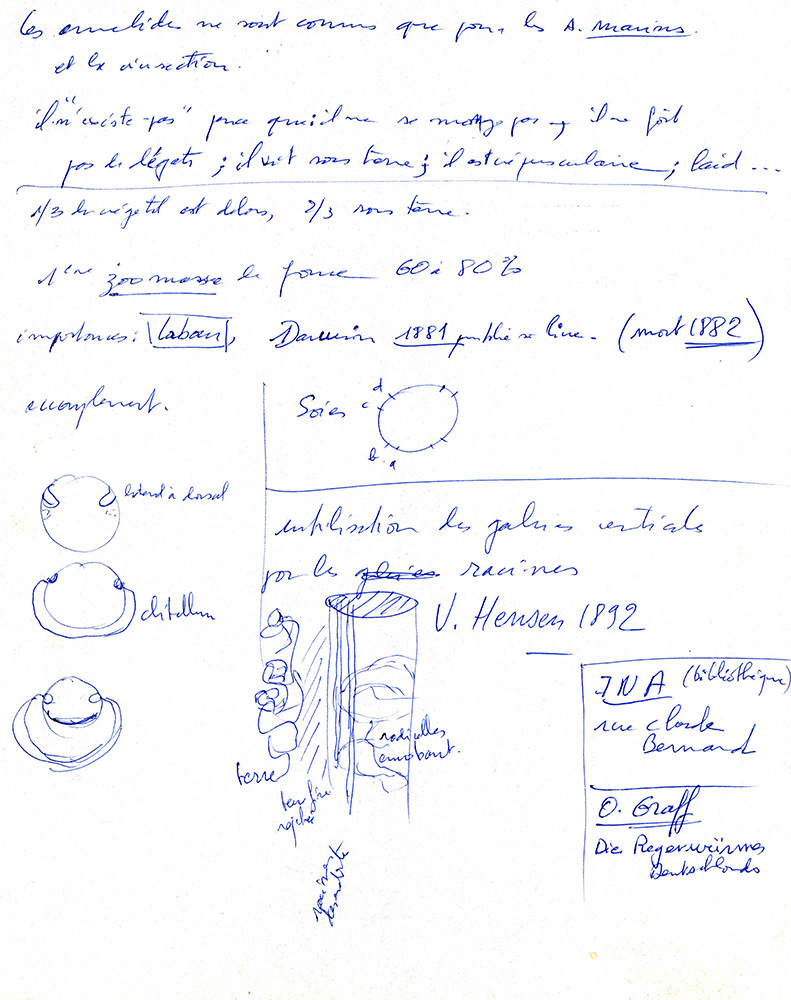 Les annélides ne sont connus que pour les A. marins.
et la vivisection.
il "n'existe-pas" parce qu'il ne se mange pas, il ne fait
pas de dégats ; il vit sous terre ; il est crépusculaire ; laid ...
1/3 du végétal est dehors, 2/3 sous terre.
1ère zoomasse de 60 à 80 %
importances : labour, Darwin 1881 publie ce livre. (mort 1882)
accouplement.
Soies
d
c
b a
latéral à dorsal
clitellum
utilisation des galeries verticales
par les racines
V. Hensen 1892
radicelles
terre
terre
rejetée
racines
INA (bibliothèque)
rue Claude
Bernard
O. Graff
Die Regenwürmer
Deutschlands